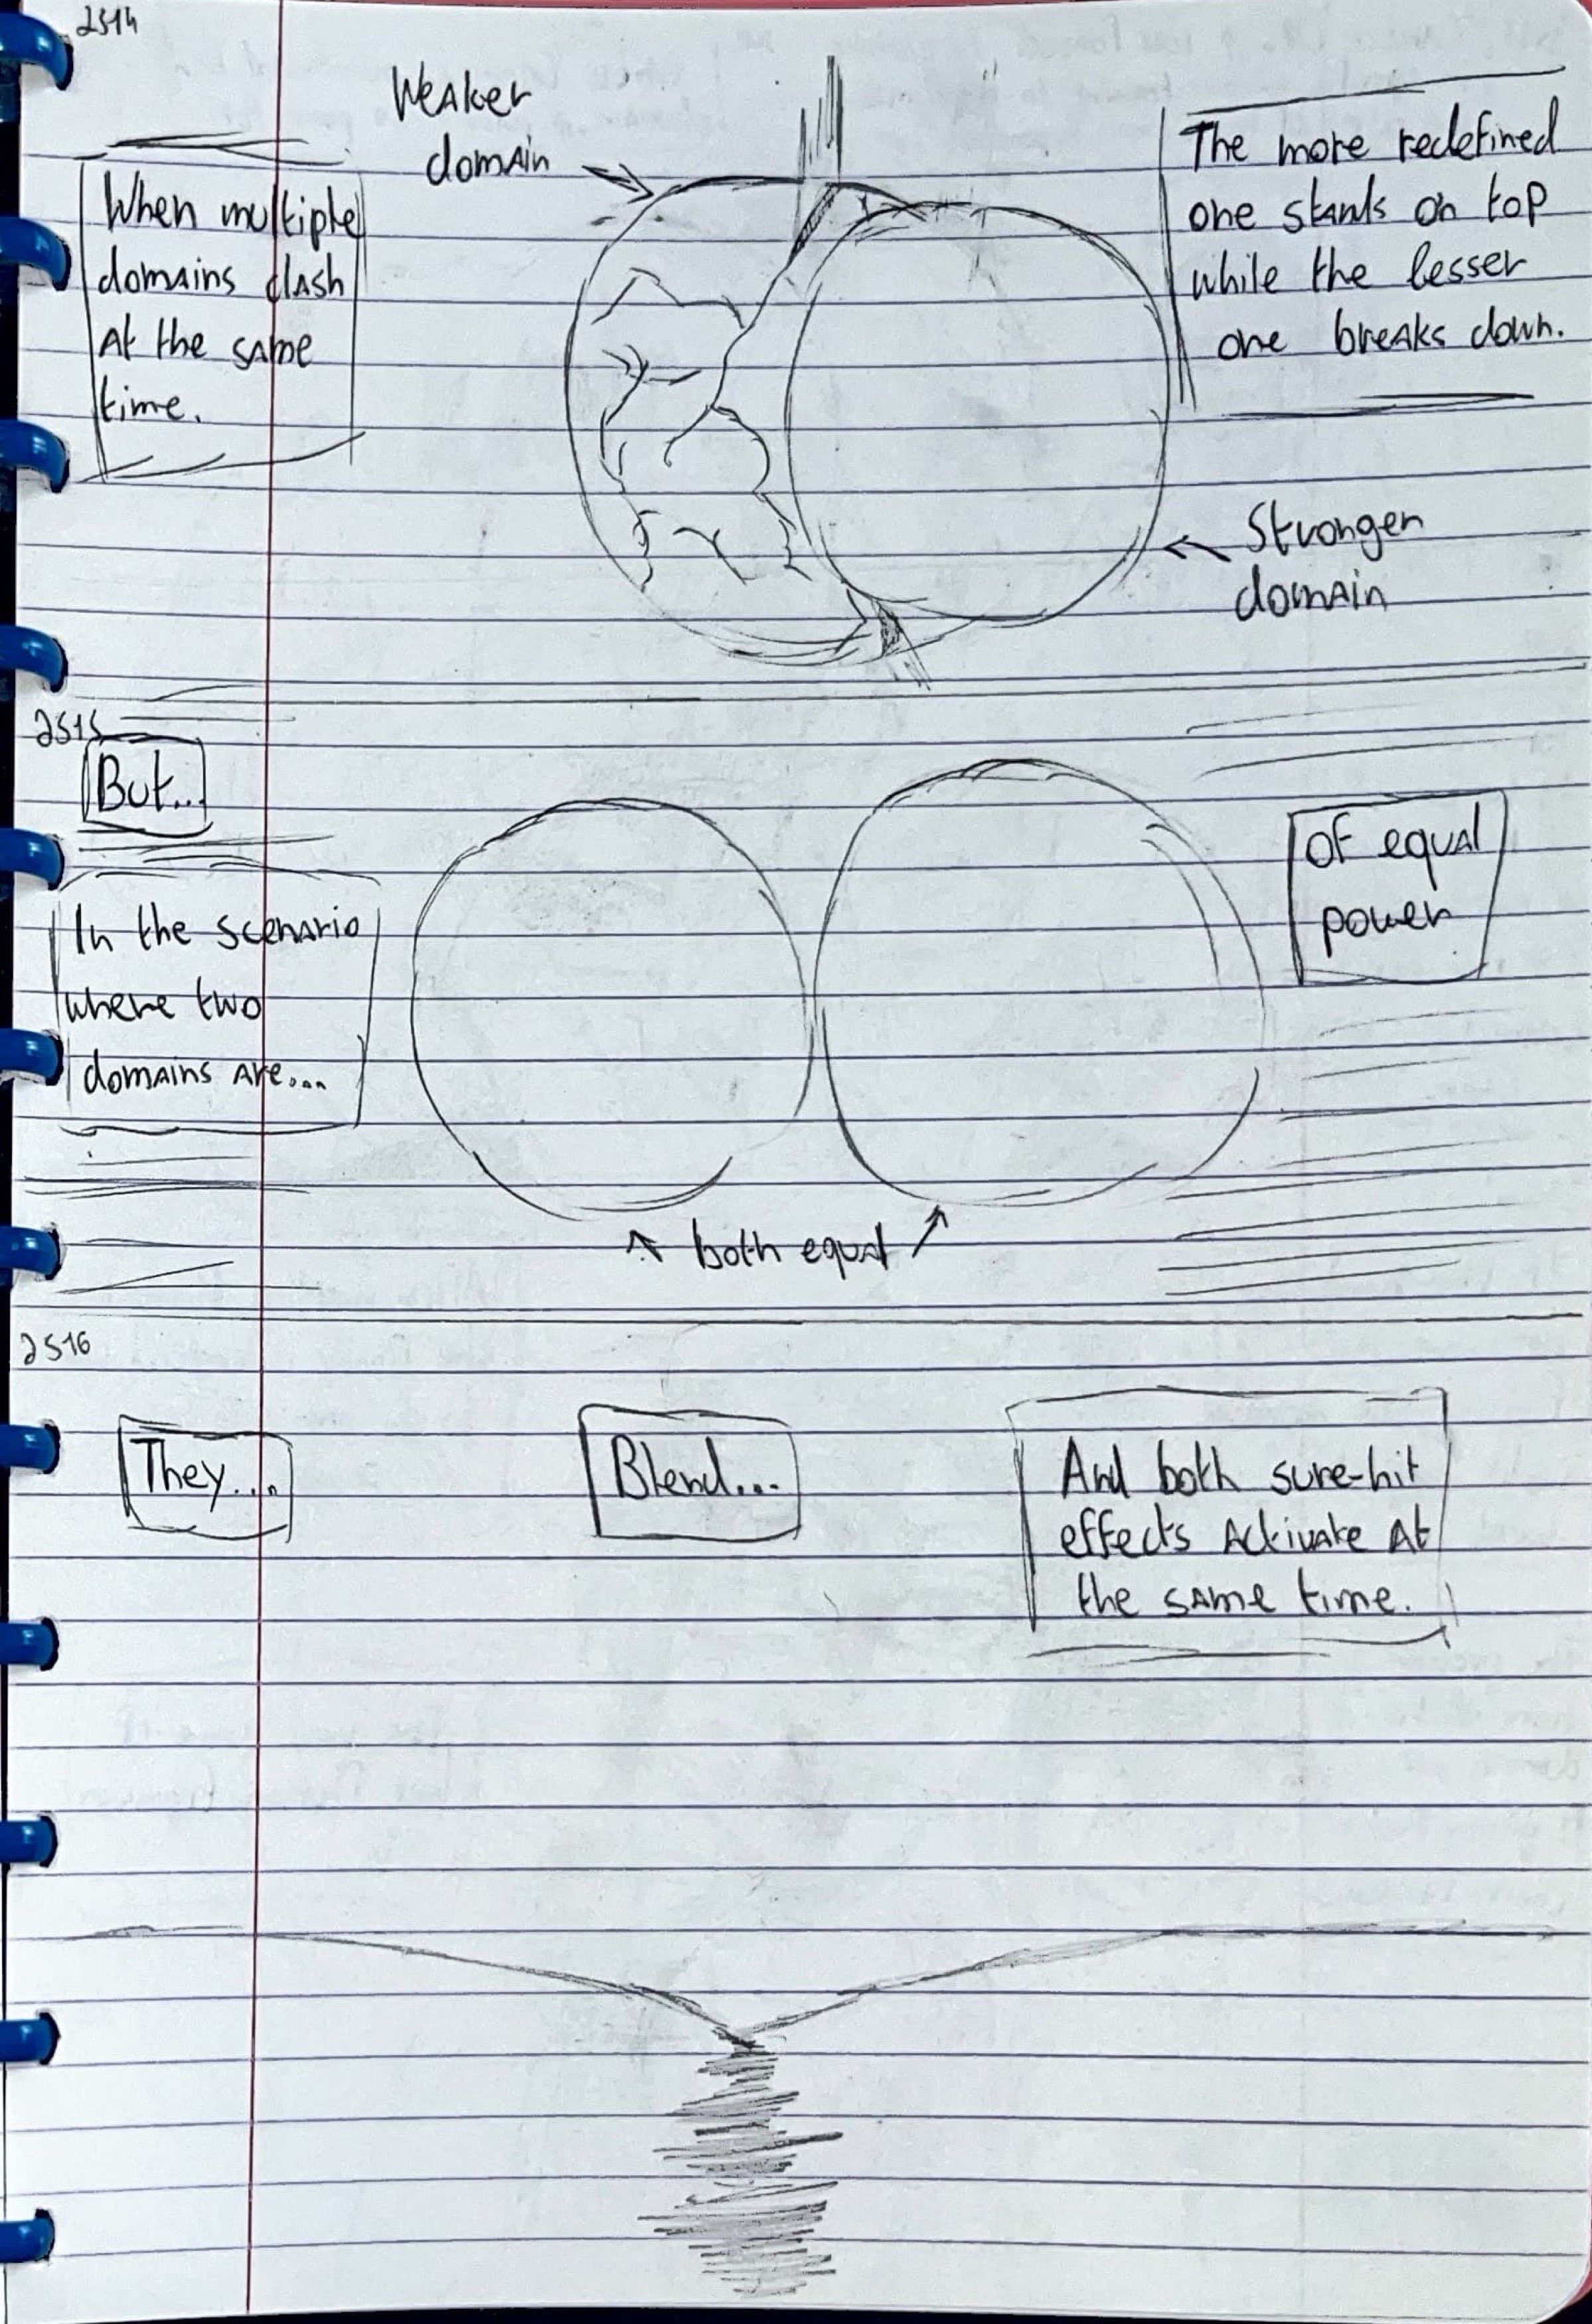 2514
Weaker
domain
When multiple
domains clash
At the same
time.
The more redefined
one stands on top
while the lesser
one breaks down.
Stronger
domain
2515
But...
In the scenario
where two
domains are...
of equal
power
both equal
2516
They...
Blend...
And both sure-hit
effects Activate At
the same time.